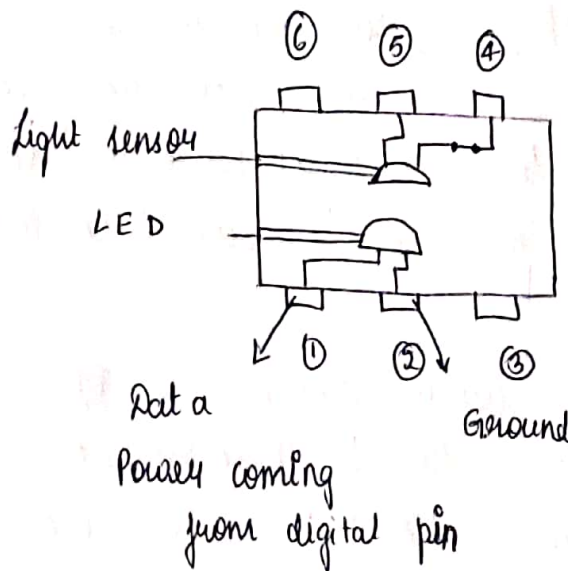 ⑥ ⑤ ④
Light sensor
LED
① ② ③
Data
Ground
Power coming
from digital pin